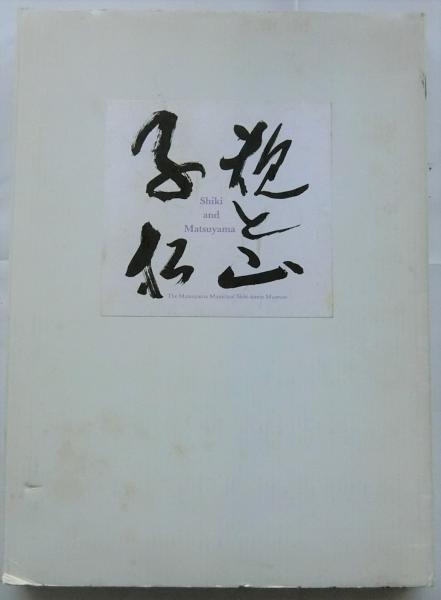 子規
と
松山
Shiki
and
Matsuyama
The Matsuyama Municipal Shiki-kinen Museum